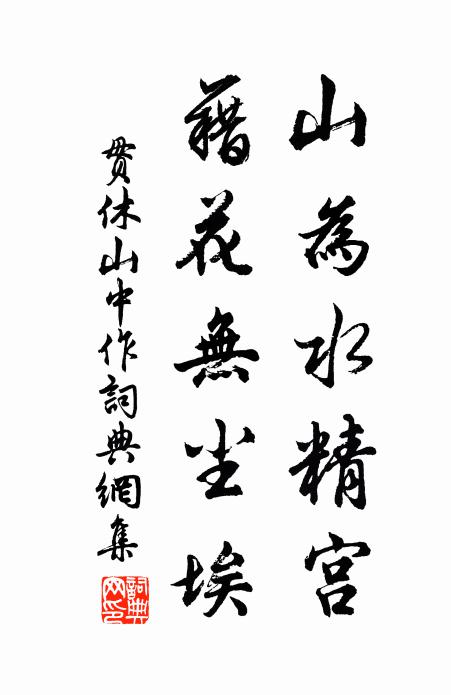 山為水精宮
藉花無尘埃
贯休山中作詞典網集
詞典网印